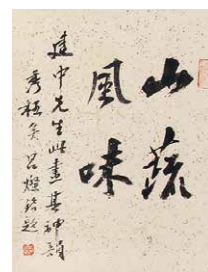 山蔬
風味
建中先生此畫其神韻
秀極矣 呂燈銘題